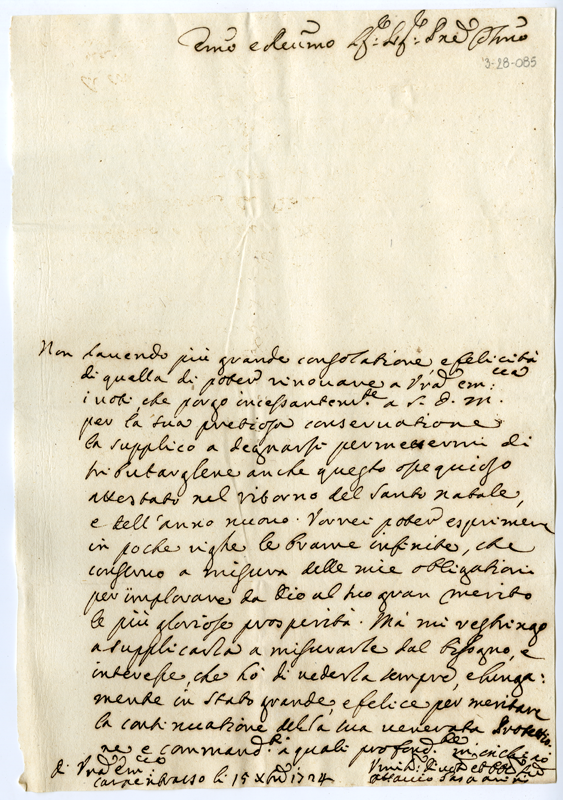 Emo e Reumo Sig.e Sig.e Pñe Col̃mo
3-28-085
Non hauendo più grande consolatione e felicità
di quella di poter rinouare a Vrã Em:cca
i uoti che porgo incessantem.te a S. D. M.
per la sua pretiosa conseruatione
la supplico a degnarsi permettermi di
tributarglene anche questo ossequioso
attestato nel ritorno del Santo natale,
e dell'anno nuouo. Vorrei poter esprimere
in poche righe le brame infinite, che
conseruo a misura delle mie obligationi
per implorare da Dio al suo gran merito
le più gloriose prosperità. Mà mi restringo
a supplicarla a misurarle dal bisogno, e
interesse, che hò di uederla sempre, e lunga:
mente in stato grande, e felice per meritare
la continuatione della sua uenerata Protettio:
ne e command.ti a quali profond.te m'inchino
di Vrã Em:cca
Carpentrasso li 15 Xbre 1724
Vmiliss: Diuot et Obb